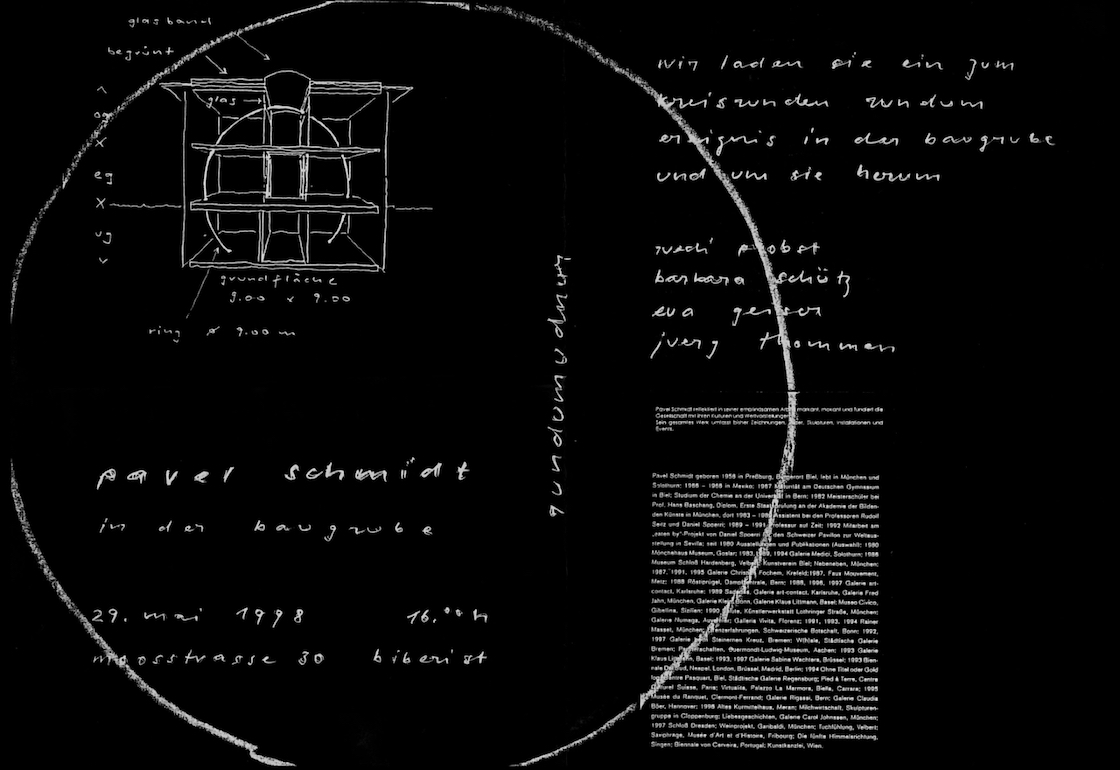 glasband
begrünt
glas
og
x
eg
x
ug
grundfläche
9.00 x 9.00
ring ø 9.00 m
pavel schmidt
in der baugrube
29. mai 1998 16.°°h
moosstrasse 30 biberist
wir laden sie ein zum
kreisrunden rundum
ereignis in der baugrube
und um sie herum
ruedi probst
barbara schütz
eva gerber
juerg thommen
Pavel Schmidt reflektiert in seiner empfindsamen Art markant, mokant und fundiert die
Gesellschaft mit ihren Kulturen und Weltvorstellungen.
Sein gesamtes Werk umfasst bisher Zeichnungen, Skulpturen, Installationen und
Events.
Pavel Schmidt geboren 1956 in Preßburg, Bürgerort Biel, lebt in München und
Solothurn; 1956 – 1968 in Mexiko; 1967 Maturität am Deutschen Gymnasium
in Biel; Studium der Chemie an der Universität in Bern; 1982 Meisterschüler bei
Prof. Hans Baschang, Diplom, Erste Staatsprüfung an der Akademie der Bilden-
den Künste in München, dort 1983 – 1989 Assistent bei den Professoren Rudolf
Seitz und Daniel Spoerri; 1989 – 1991 Professur auf Zeit; 1992 Mitarbeit am
„eaten by"-Projekt von Daniel Spoerri für den Schweizer Pavillon zur Weltaus-
stellung in Sevilla; seit 1980 Ausstellungen und Publikationen (Auswahl): 1980
Mönchehaus Museum, Goslar; 1983, 1989, 1994 Galerie Medici, Solothurn; 1986
Museum Schloß Hardenberg, Velbert; Kunstverein Biel; Nebeneben, München;
1987, 1991, 1995 Galerie Christian Fochem, Krefeld; 1987, Faux Mouvement,
Metz; 1988 Röstigrügel, Dampfzentrale, Bern; 1988, 1996, 1997 Galerie art-
contact, Karlsruhe; 1989 Galerie art-contact, Karlsruhe, Galerie Fred
Jahn, München, Galerie Klein, Bonn, Galerie Klaus Littmann, Basel; Museo Civico,
Gibellina, Sizilien; 1990 Künstlerwerkstatt Lothringer Straße, München;
Galerie Numaga, Auvernier; Galleria Vivita, Florenz; 1991, 1993, 1994 Rainer
Masset, München; Grenzerfahrungen, Schweizerische Botschaft, Bonn; 1992,
1997 Galerie Steinernen Kreuz, Bremen; Städtische Galerie
Bremen; Partnerschaften, Suermondt-Ludwig-Museum, Aachen; 1993 Galerie
Klaus Littmann, Basel; 1993, 1997 Galerie Sabine Wachters, Brüssel; 1993 Bien-
nale Neapel, London, Brüssel, Madrid, Berlin; 1994 Ohne Titel oder Gold
Centre Pasquart, Biel, Städtische Galerie Regensburg; Pied à Terre, Centre
Culturel Suisse, Paris; Virtualità, Palazzo La Marmora, Biella, Carrara; 1995
Musée du Ranquet, Clermont-Ferrand; Galerie Rigassi, Bern; Galerie Claudia
Böer, Hannover; 1996 Altes Kurmittelhaus, Meran; Milchwirtschaft, Skulpturen-
gruppe in Cloppenburg; Liebesgeschichten, Galerie Carol Johnssen, München;
1997 Schloß Dresden; Weinprojekt, Garibaldi, München; Tuchfühlung, Velbert;
Saviphrage, Musée d'Art et d'Histoire, Fribourg; Die fünfte Himmelsrichtung,
Singen; Biennale von Cerveira, Portugal; Kunstkanzlei, Wien.